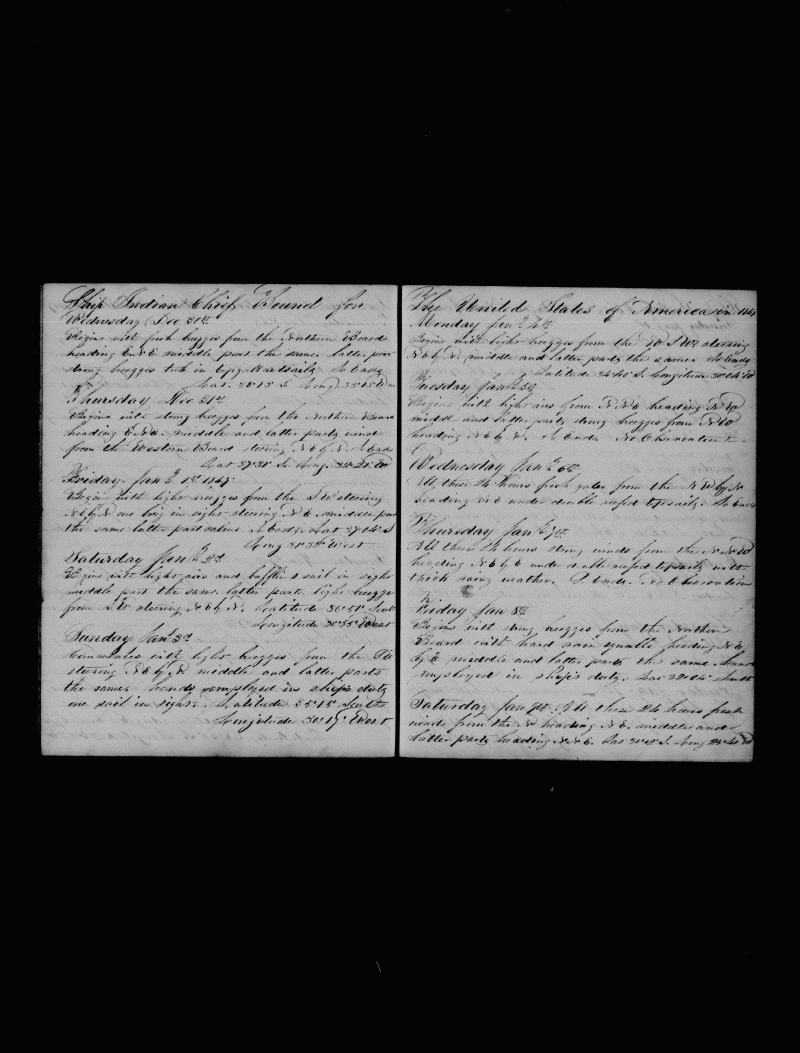 Ship Indian Chief Bound for
Wednesday Dec 30th
Begins with fresh breezes from the Northern Board
heading E middle part the same latter part
strong breezes took in top Gallantsails So Ends
Lat. 38°15 S Long. 35°15 W
Thursday Dec 31st
Begins with strong breezes from the Northern Board
heading middle and latter parts wind
from the Western Board steering N E by N. So Ends
Lat 37°31 S. Long. W
Friday Jan 1st
Begins with light breezes from the S W steering
N E by N one brig in sight steering N E middle part
the same latter part calms So Ends. Lat 37°04 S
Long West
Saturday Jan 2d
Begins with light airs and baffling sail in sight
middle part the same latter parts light breeze
from S W steering N E by N. Latitude 36°51 South
Longitude 30°55 West
Sunday Jan 3d
Commences with light breezes from the
steering N E by N middle and latter parts
the same, hands employed in ship's duty
one sail in sight. Latitude 35°15 South
Longitude 30°19 West
The United States of America in
Monday Jan 4th
Begins with light breezes from the W S W steering
N E by N. middle and latter parts the same. So Ends
Latitude 34°40 S. Longitude W
Tuesday Jan 5th
Begins with light airs from heading N W
middle and latter parts strong breezes from N W
heading N E by N. So Ends. No Observation
Wednesday Jan 6th
All these 24 hours fresh gales from the N W by N
heading N E under double reefed topsails. So Ends
Thursday Jan 7th
All these 24 hours strong winds from the N N W
heading N E by E under double reefed topsails with
thick rainy weather. So Ends. No Observation
Friday Jan 8th
Begins with strong breezes from the Northern
Board with hard rain squalls heading N E
by E middle and latter parts the same. hands
employed in ship's duty. Lat 32°04 South
Saturday Jan 9th All these 24 hours fresh
winds from the N heading N E. middle and
latter parts heading N N E. Lat S. Long W